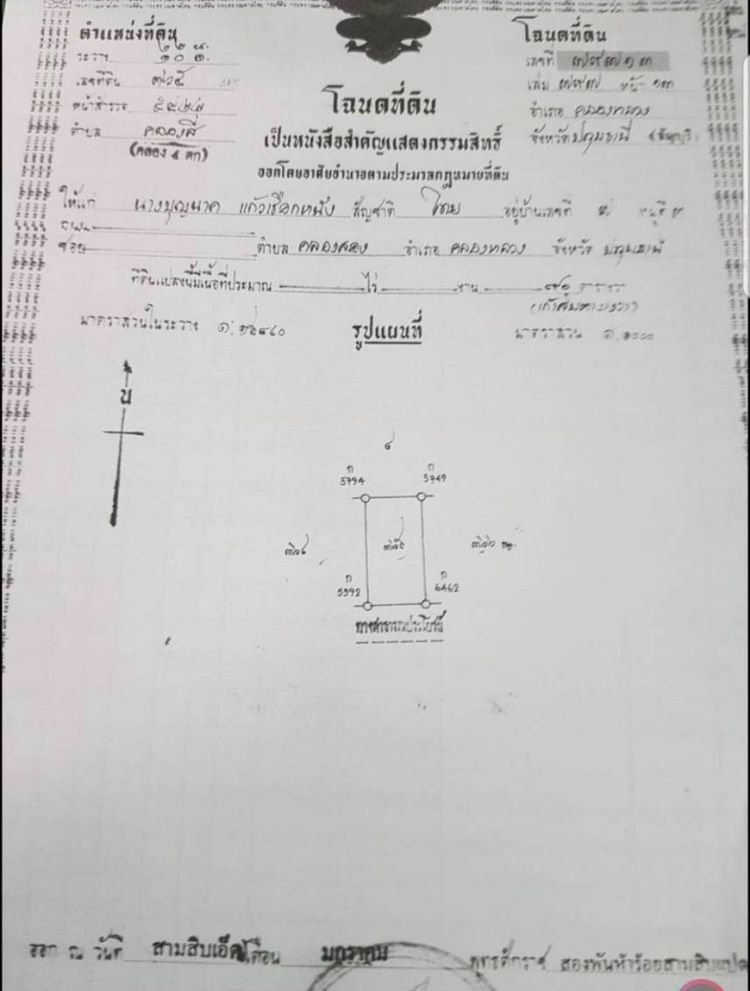 ตำแหน่งที่ดิน
ระวาง
เลขที่ดิน ๓๖๕
หน้าสำรวจ ๕๕๔๔
ตำบล คลองสี่
(คลอง ๔ ตก)
โฉนดที่ดิน
เลขที่
เล่ม หน้า ๑๓
อำเภอ คลองหลวง
จังหวัด ปทุมธานี (ธัญบุรี)
โฉนดที่ดิน
เป็นหนังสือสำคัญแสดงกรรมสิทธิ์
ออกโดยอาศัยอำนาจตามประมวลกฎหมายที่ดิน
ให้แก่ นางบุญนาค แก้วเชือกหนัง สัญชาติ ไทย อยู่บ้านเลขที่ ๗ หมู่ที่ ๓
ถนน
ซอย ตำบล คลองสอง อำเภอ คลองหลวง จังหวัด ปทุมธานี
ที่ดินแปลงนี้มีเนื้อที่ประมาณ ไร่ งาน ๙๑ ตารางวา
(เก้าสิบตารางวา)
มาตราส่วนในระวาง
รูปแผนที่
มาตราส่วน ๑:๑๐๐๐
น
๔
ก 5794
ก 5749
๓๖๔
๓๖๕
ก 5592
ก 6462
ทางสาธารณประโยชน์
ออก ณ วันที่ สามสิบเอ็ด เดือน มกราคม พุทธศักราช สองพันห้าร้อยสามสิบแปด